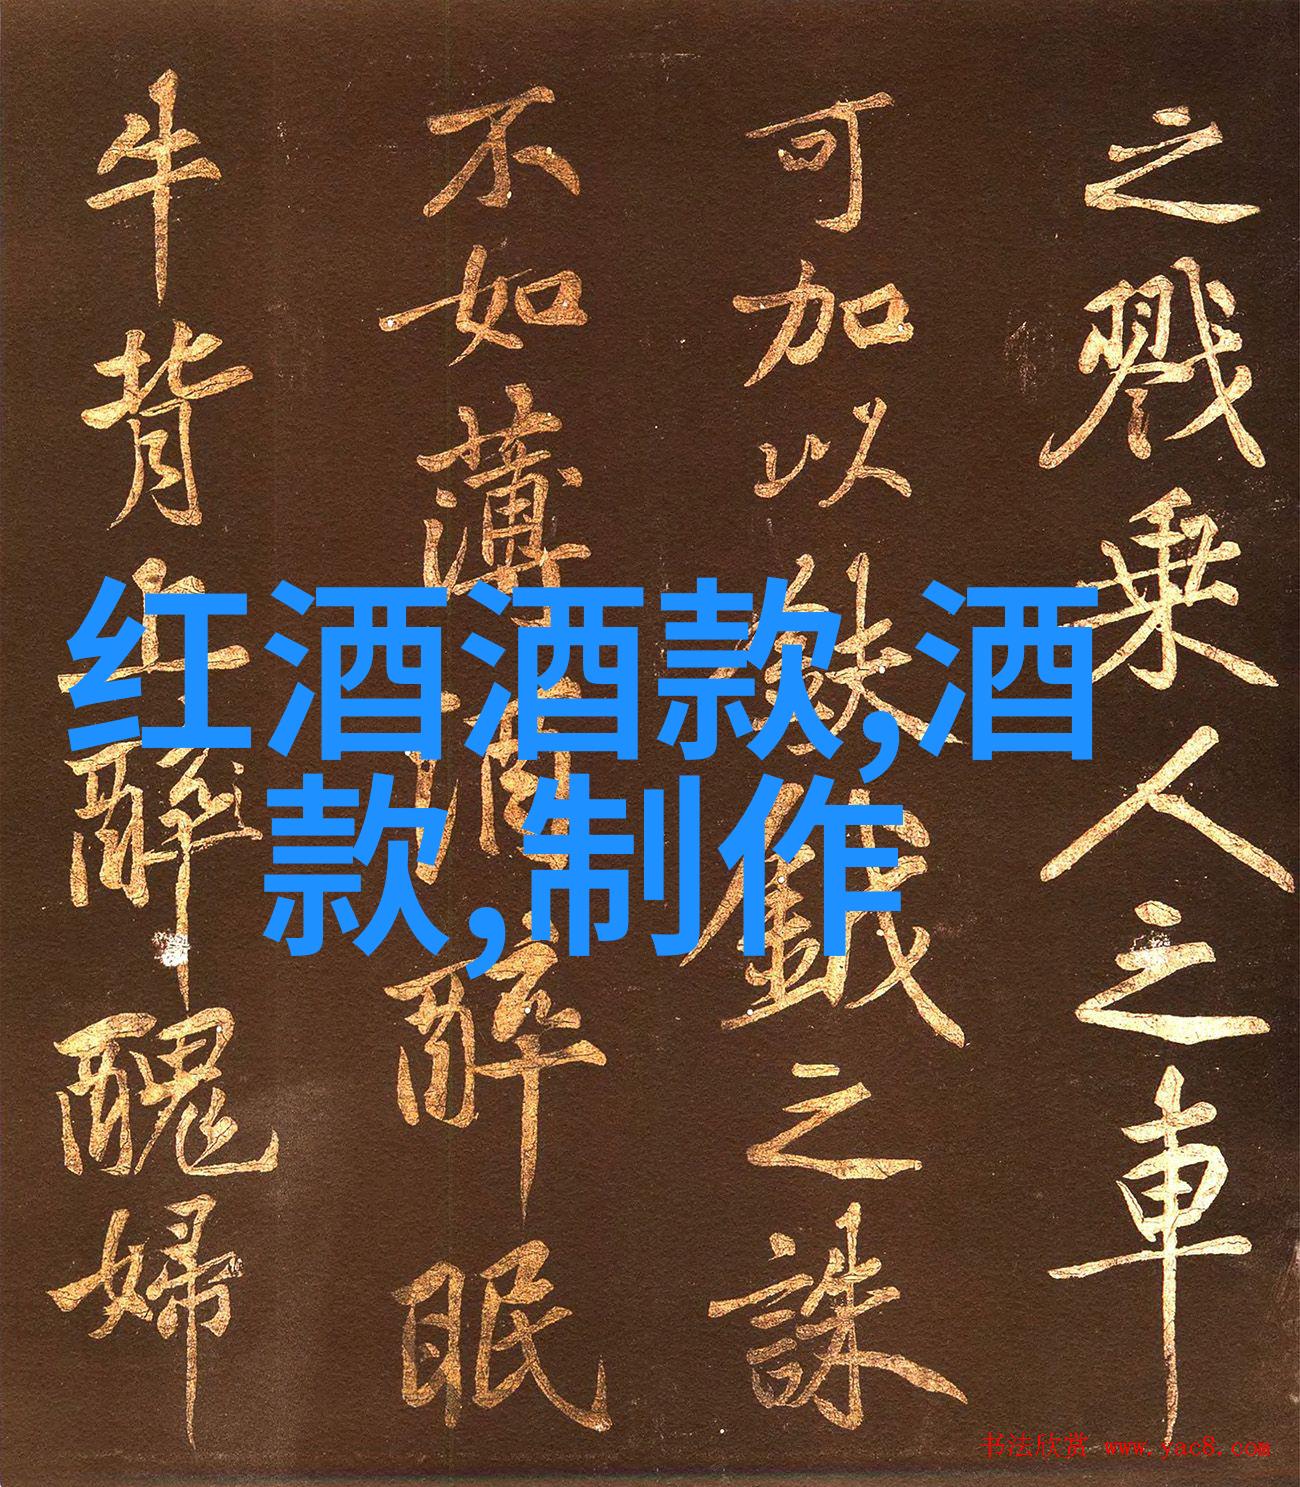 之戮乘人之車
可加以鈇鉞之誅
不如薄酒醉眠
牛背上醉醜婦
红酒酒款,酒
款,制作
书法欣赏 www.yac8.com